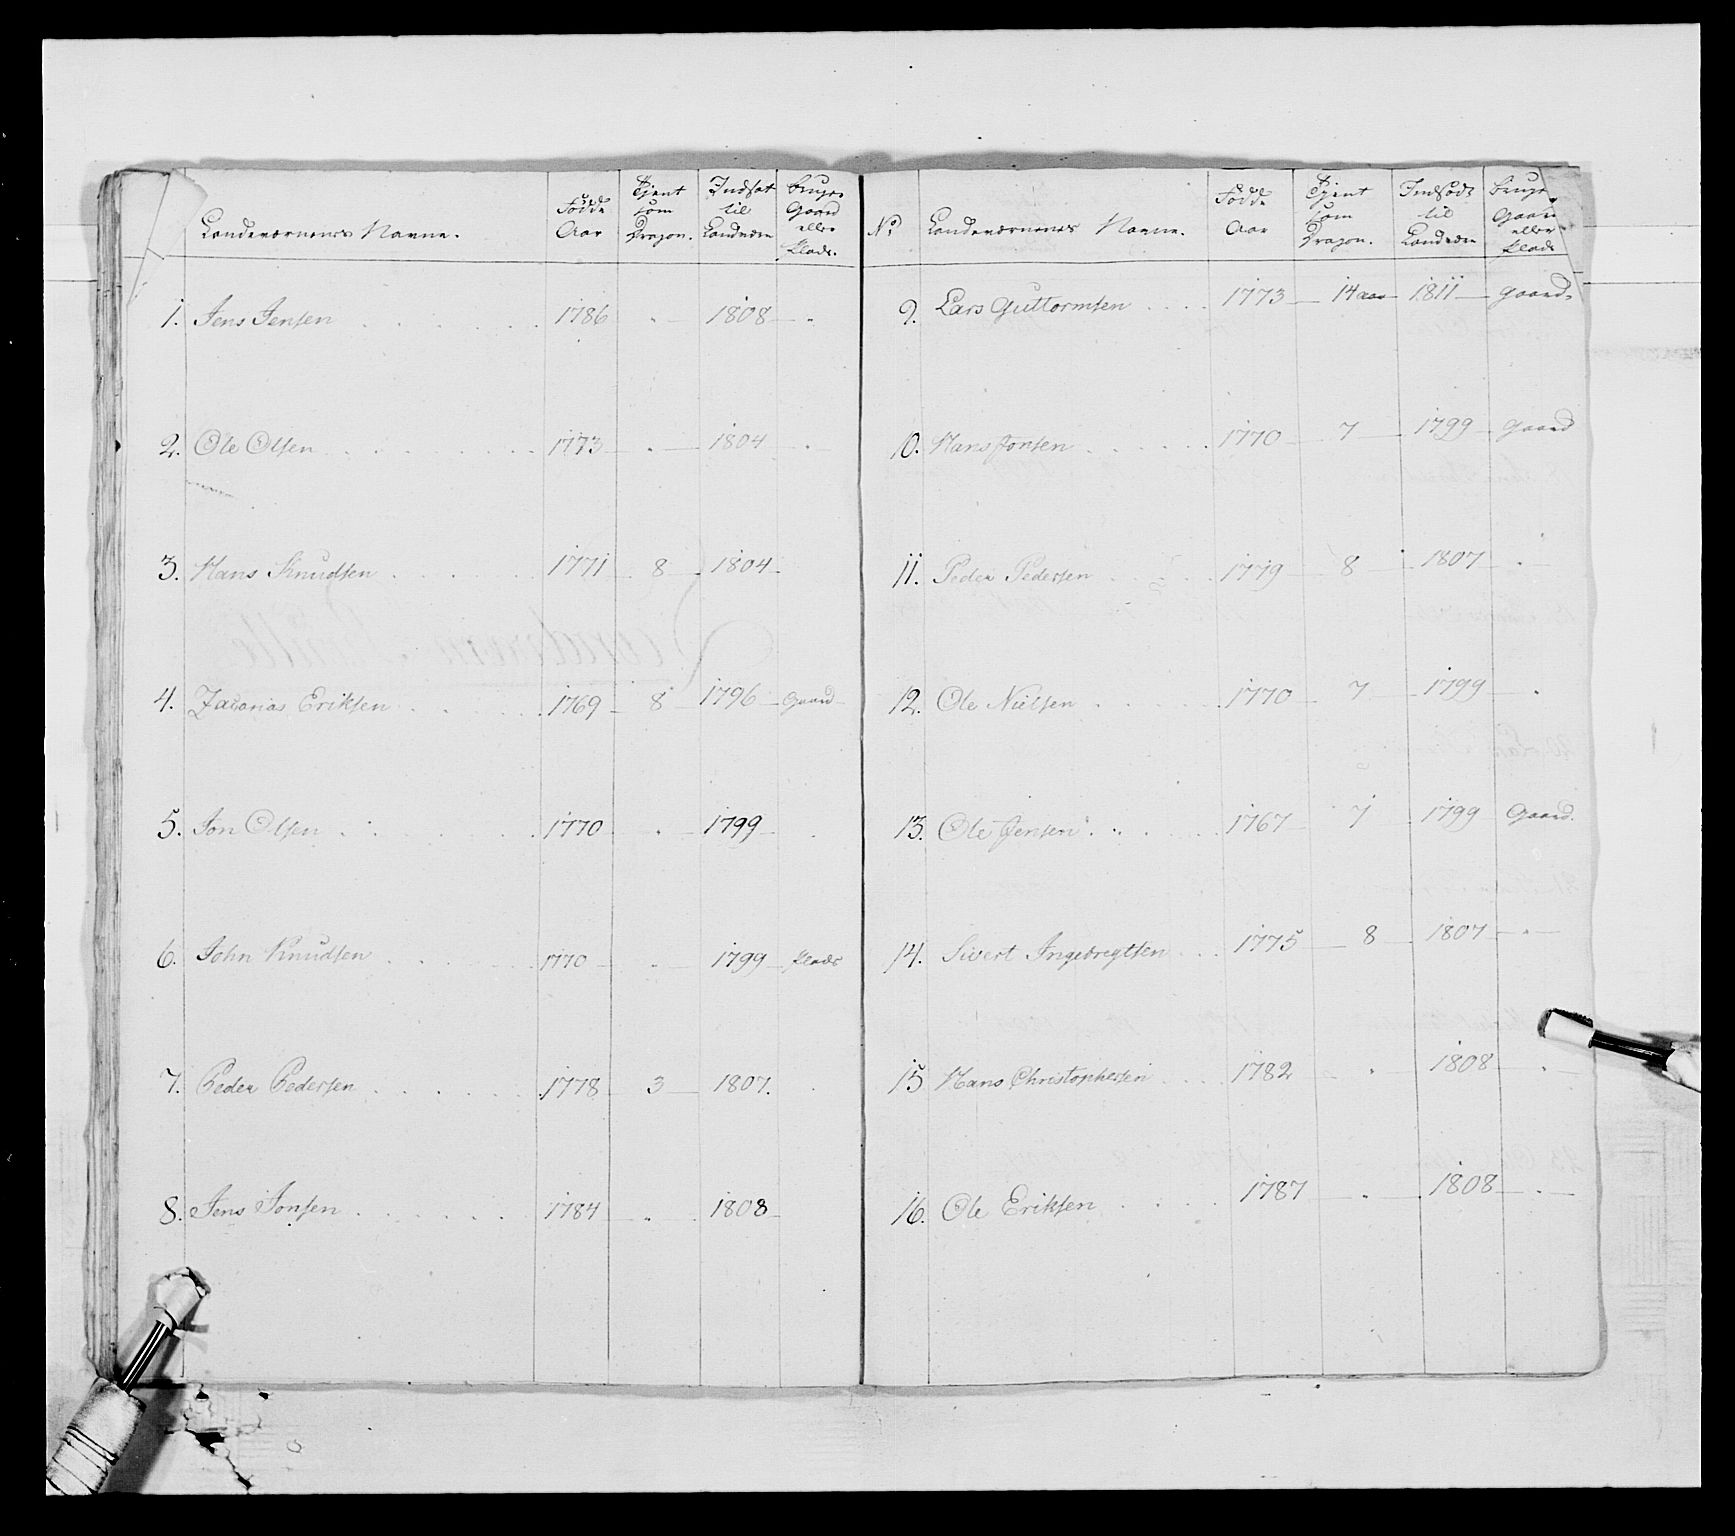 Landeværnenes Navne.
Fødde Aar
Tjent som Dragon.
Indsat til Landværn
bruger Gaard eller Plads.
1. Jens Jensen 1786 " 1808 "
2. Ole Olsen 1773 " 1804 "
3. Hans Knudsen 1771 8 1804
4. Zacarias Eriksen 1769 8 1796 Gaard
5. Jon Olsen 1770 " 1799
6. John Knudsen 1770 " 1799 Plads
7. Peder Pedersen 1778 3 1807.
8. Jens Jonsen 1784 " 1808
No
Landeværnenes Navne.
Fødde Aar
Tjent som Dragon.
Indsadt til Landværn
bruger Gaard eller Plads
9. Lars Guttormsen 1773 14 aar 1811 gaard.
10. Hans Jonsen 1770 7 1799 gaard
11. Peder Pedersen 1779 8 1807 "
12. Ole Nielsen 1770 7 1799 "
13. Ole Jensen 1767 7 1799 Gaard.
14. Sivert Ingebregtsen 1775 8 1807 "
15 Hans Christophersen 1782 " 1808 "
16. Ole Eriksen 1787 " 1808 "